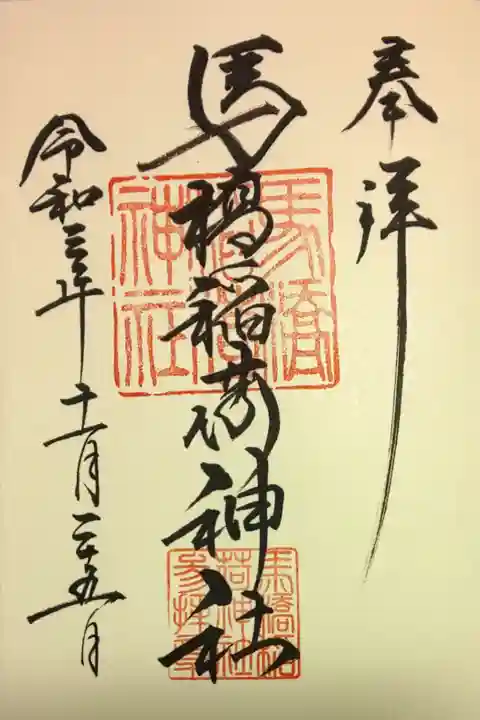 奉拝
馬橋稲荷神社
令和三年十一月二十五日
馬橋稲荷神社
馬橋稲荷神社参拝章